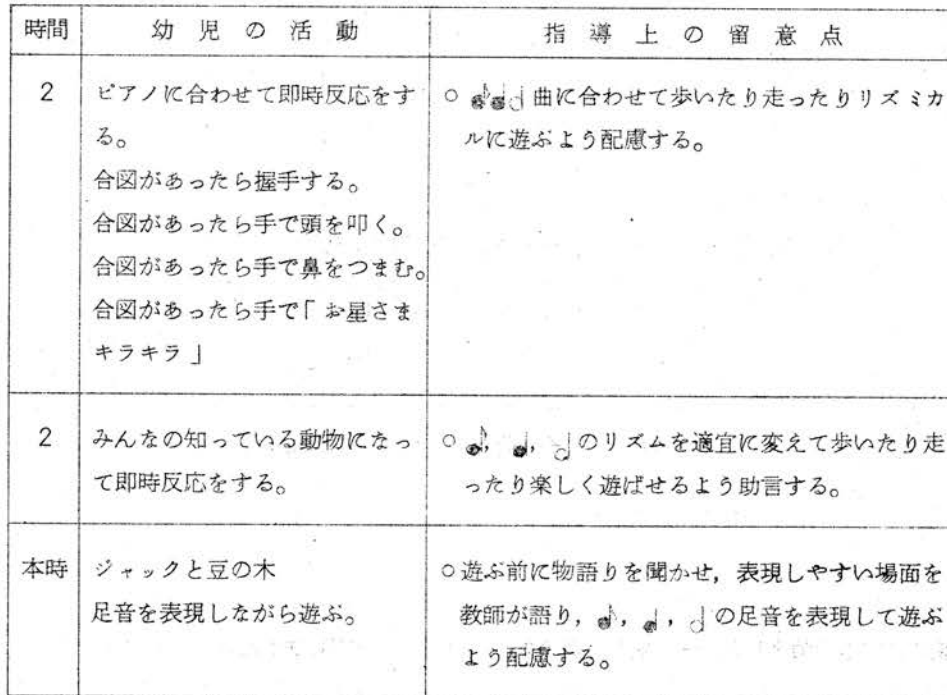 時間
幼児の活動
指導上の留意点
2
ピアノに合わせて即時反応をす
る。
合図があったら握手する。
合図があったら手で頭を叩く。
合図があったら手で鼻をつまむ。
合図があったら手で「お星さま
キラキラ」
○ ♪♩𝅗𝅥 曲に合わせて歩いたり走ったりリズミカ
ルに遊ぶよう配慮する。
2
みんなの知っている動物になっ
て即時反応をする。
○ ♪, ♩, 𝅗𝅥 のリズムを適宜に変えて歩いたり走
ったり楽しく遊ばせるよう助言する。
本時
ジャックと豆の木
足音を表現しながら遊ぶ。
○ 遊ぶ前に物語りを聞かせ，表現しやすい場面を
教師が語り，♪，♩，𝅗𝅥 の足音を表現して遊ぶ
よう配慮する。